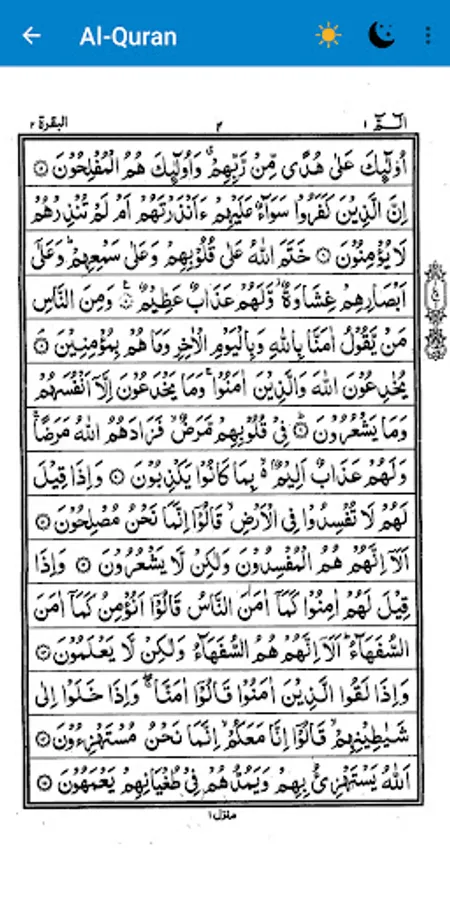 Al-Quran
الٓمّٓ ١
٢
البقرة ٢
اُولٰٓئِكَ عَلٰى هُدًى مِّنْ رَّبِّهِمْ ۙ وَاُولٰٓئِكَ هُمُ الْمُفْلِحُوْنَ
اِنَّ الَّذِيْنَ كَفَرُوْا سَوَآءٌ عَلَيْهِمْ ءَاَنْذَرْتَهُمْ اَمْ لَمْ تُنْذِرْهُمْ
لَا يُؤْمِنُوْنَ خَتَمَ اللّٰهُ عَلٰى قُلُوْبِهِمْ وَعَلٰى سَمْعِهِمْ ؕ وَعَلٰٓى
اَبْصَارِهِمْ غِشَاوَةٌ ؗ وَّلَهُمْ عَذَابٌ عَظِيْمٌ وَمِنَ النَّاسِ
مَنْ يَّقُوْلُ اٰمَنَّا بِاللّٰهِ وَبِالْيَوْمِ الْاٰخِرِ وَمَا هُمْ بِمُؤْمِنِيْنَ
يُخٰدِعُوْنَ اللّٰهَ وَالَّذِيْنَ اٰمَنُوْا ۚ وَمَا يَخْدَعُوْنَ اِلَّآ اَنْفُسَهُمْ
وَمَا يَشْعُرُوْنَ فِيْ قُلُوْبِهِمْ مَّرَضٌ ۙ فَزَادَهُمُ اللّٰهُ مَرَضًا ۚ
وَلَهُمْ عَذَابٌ اَلِيْمٌۢ ۙ بِمَا كَانُوْا يَكْذِبُوْنَ وَاِذَا قِيْلَ
لَهُمْ لَا تُفْسِدُوْا فِي الْاَرْضِ ۙ قَالُوْٓا اِنَّمَا نَحْنُ مُصْلِحُوْنَ
اَلَآ اِنَّهُمْ هُمُ الْمُفْسِدُوْنَ وَلٰكِنْ لَّا يَشْعُرُوْنَ وَاِذَا
قِيْلَ لَهُمْ اٰمِنُوْا كَمَآ اٰمَنَ النَّاسُ قَالُوْٓا اَنُؤْمِنُ كَمَآ اٰمَنَ
السُّفَهَآءُ ؕ اَلَآ اِنَّهُمْ هُمُ السُّفَهَآءُ وَلٰكِنْ لَّا يَعْلَمُوْنَ
وَاِذَا لَقُوا الَّذِيْنَ اٰمَنُوْا قَالُوْٓا اٰمَنَّا ۖ وَاِذَا خَلَوْا اِلٰى
شَيٰطِيْنِهِمْ ۙ قَالُوْٓا اِنَّا مَعَكُمْ ۙ اِنَّمَا نَحْنُ مُسْتَهْزِءُوْنَ
اَللّٰهُ يَسْتَهْزِئُ بِهِمْ وَيَمُدُّهُمْ فِيْ طُغْيَانِهِمْ يَعْمَهُوْنَ
منزل ١